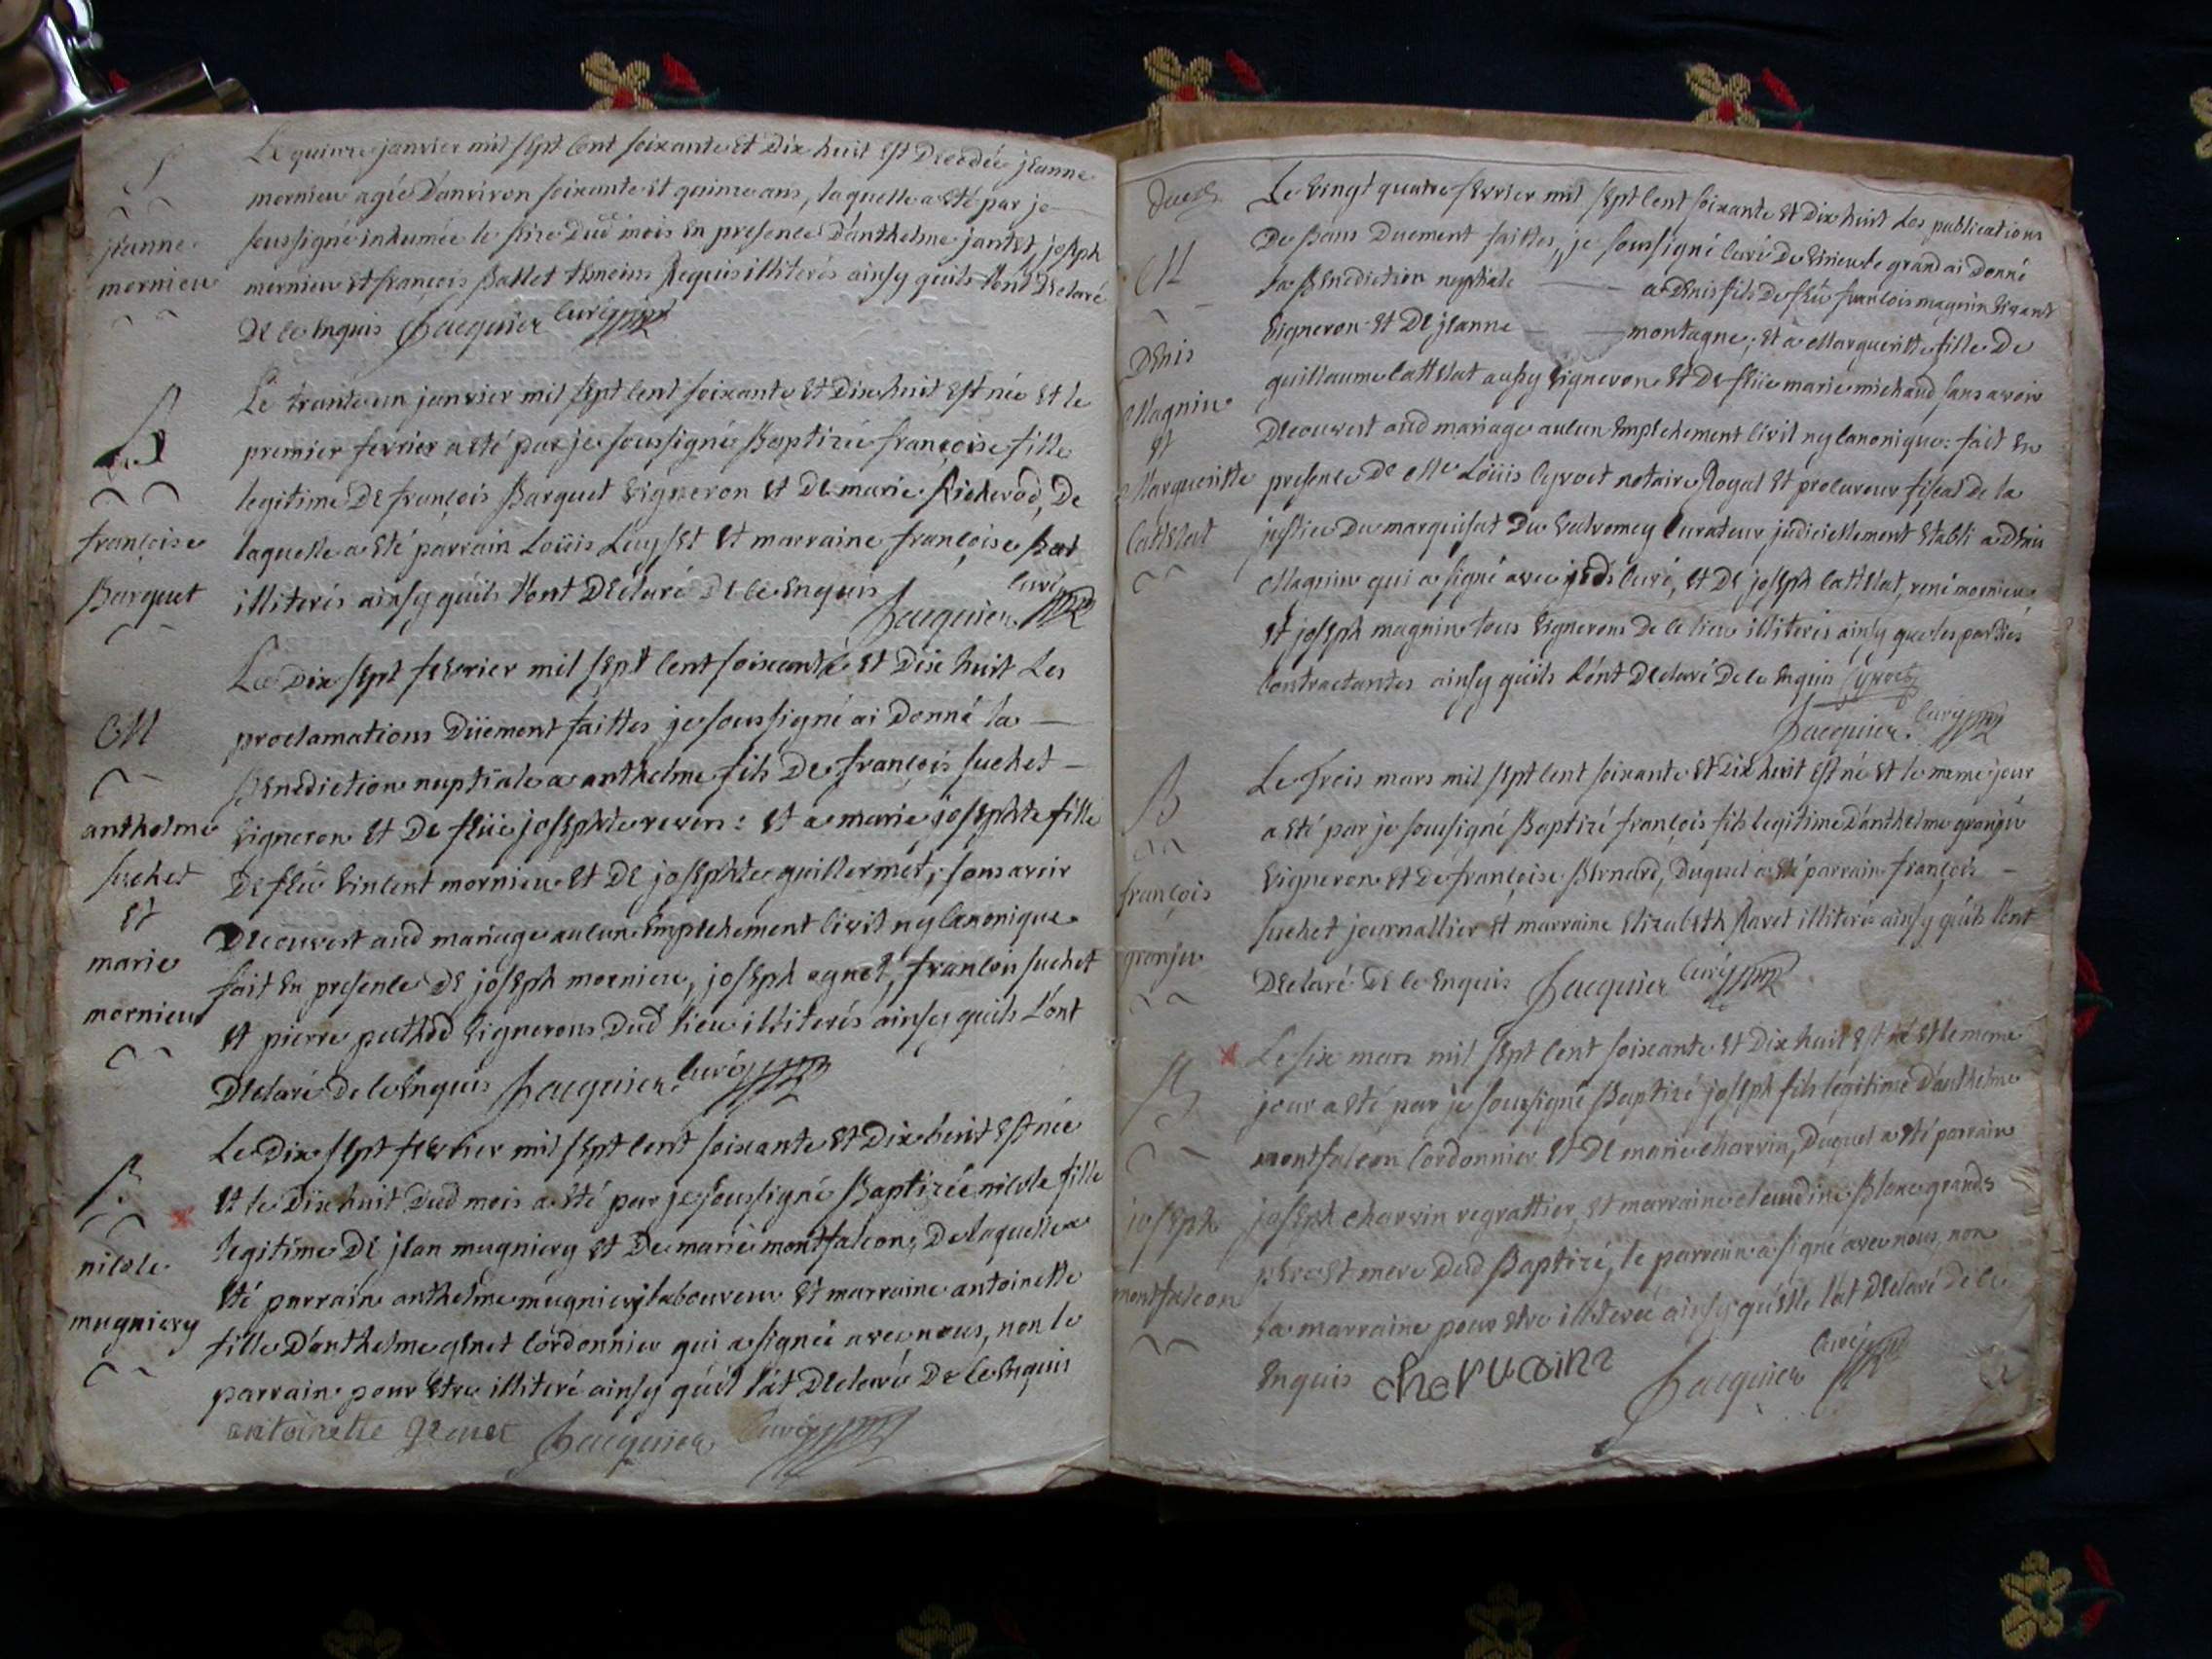 S
jeanne
mornieu
Le quinze janvier mil sept cent soixante et dix huit est decedée jeanne
mornieu agée d'anviron soixante et quinze ans, laquelle a eté par je
soussigné inhumée le seize dud mois en presence d'anthelme jantet, joseph
mornieu et françois Ballet temoins Requis illiterés ainsy quils l'ont declaré
de ce enquis Jacquier curé
B
françoise
Barquet
Le trante un janvier mil sept cent soixante et dix huit est née et le
premier fevrier a eté par je soussigné Baptizée françoise fille
legitime de françois Barquet vigneron et de marie Richerod, De
laquelle a eté parrain Loüis Luyset et marraine françoise
illiterés ainsy qu'ils l'ont declaré de ce enquis
Jacquier curé
M
anthelme
suchet
et
marie
mornieu
Le dix sept fevrier mil sept cent soixante et dix huit Les
proclamations düement faittes je soussigné ai donné la
Benediction nuptiale a anthelme fils de françois suchet
vigneron et de feüe josephte revers : et a marie josephte fille
de feü vincent mornieu et de josephte guillermet, sans avoir
decouvert aud mariage aucun empechement civil ny canonique
fait en presence de joseph mornieu, joseph agnet, françois suchet
et pierre pethod vignerons dud lieu illiterés ainsy quils l'ont
declaré de ce enquis Jacquier curé
B
nicole
mugniery
Le dix sept fevrier mil sept cent soixante et dix huit est née
et le dixhuit dud mois a eté par je soussigné Baptizée nicole fille
legitime de jean mugniery et de marie montfalcon, de laquelle a
eté parrain anthelme mugniery laboureur et marraine antoinette
fille d'anthelme genet cordonnier qui a signée avec nous, non le
parrain pour etre illiteré ainsy qu'il l'at declaré de ce enquis
antoinette genet Jacquier curé
M
Denis
Magnin
et
Margueritte
Cattelat
Le vingt quatre fevrier mil sept cent soixante et dix huit Les publications
de bans duement faittes, je soussigné curé de virieu le grand ai donné
la Benediction nuptiale a Denis fils de feü françois magnin vivant
vigneron et de jeanne montagne, et a Margueritte fille de
guillaume cattelat aussy vigneron et de feüe marie michaud sans avoir
decouvert aud mariage aucun empechement civil ny canonique : fait en
presence de Me Loüis Cyvoct notaire Royal et procureur fiscal de la
justice du marquisat du valromey Curateur judiciellement etabli a denis
Magnin qui a signé avec curé, et de joseph cattelat, rené mornieu
et joseph magnin tous vignerons de ce lieu illiterés ainsy que les parties
Contractantes ainsy qu'ils l'ont declaré de ce enquis Cyvoct
Jacquier curé
B
françois
granju
Le trois mars mil sept cent soixante et dix huit est né et le meme jour
a eté par je soussigné Baptizé françois fils legitime d'anthelme granju
vigneron et de françoise Bernard, Duquel a eté parrain françois
suchet journallier et marraine elizabeth Ravet illiterés ainsy qu'ils l'ont
declaré de ce enquis Jacquier curé
B
joseph
montfalcon
Le six mars mil sept cent soixante et dix huit est né et le meme
jour a eté par je soussigné Baptizé joseph fils legitime d'anthelme
montfalcon Cordonnier et de marie charvin, Duquel a eté parrain
joseph charvin regrattier, et marraine claudine Blanc grands
pere et mere dud Baptizé, le parrain a signé avec nous, non
la marraine pour etre illiterée ainsy qu'elle l'at declaré de ce
enquis Jacquier curé